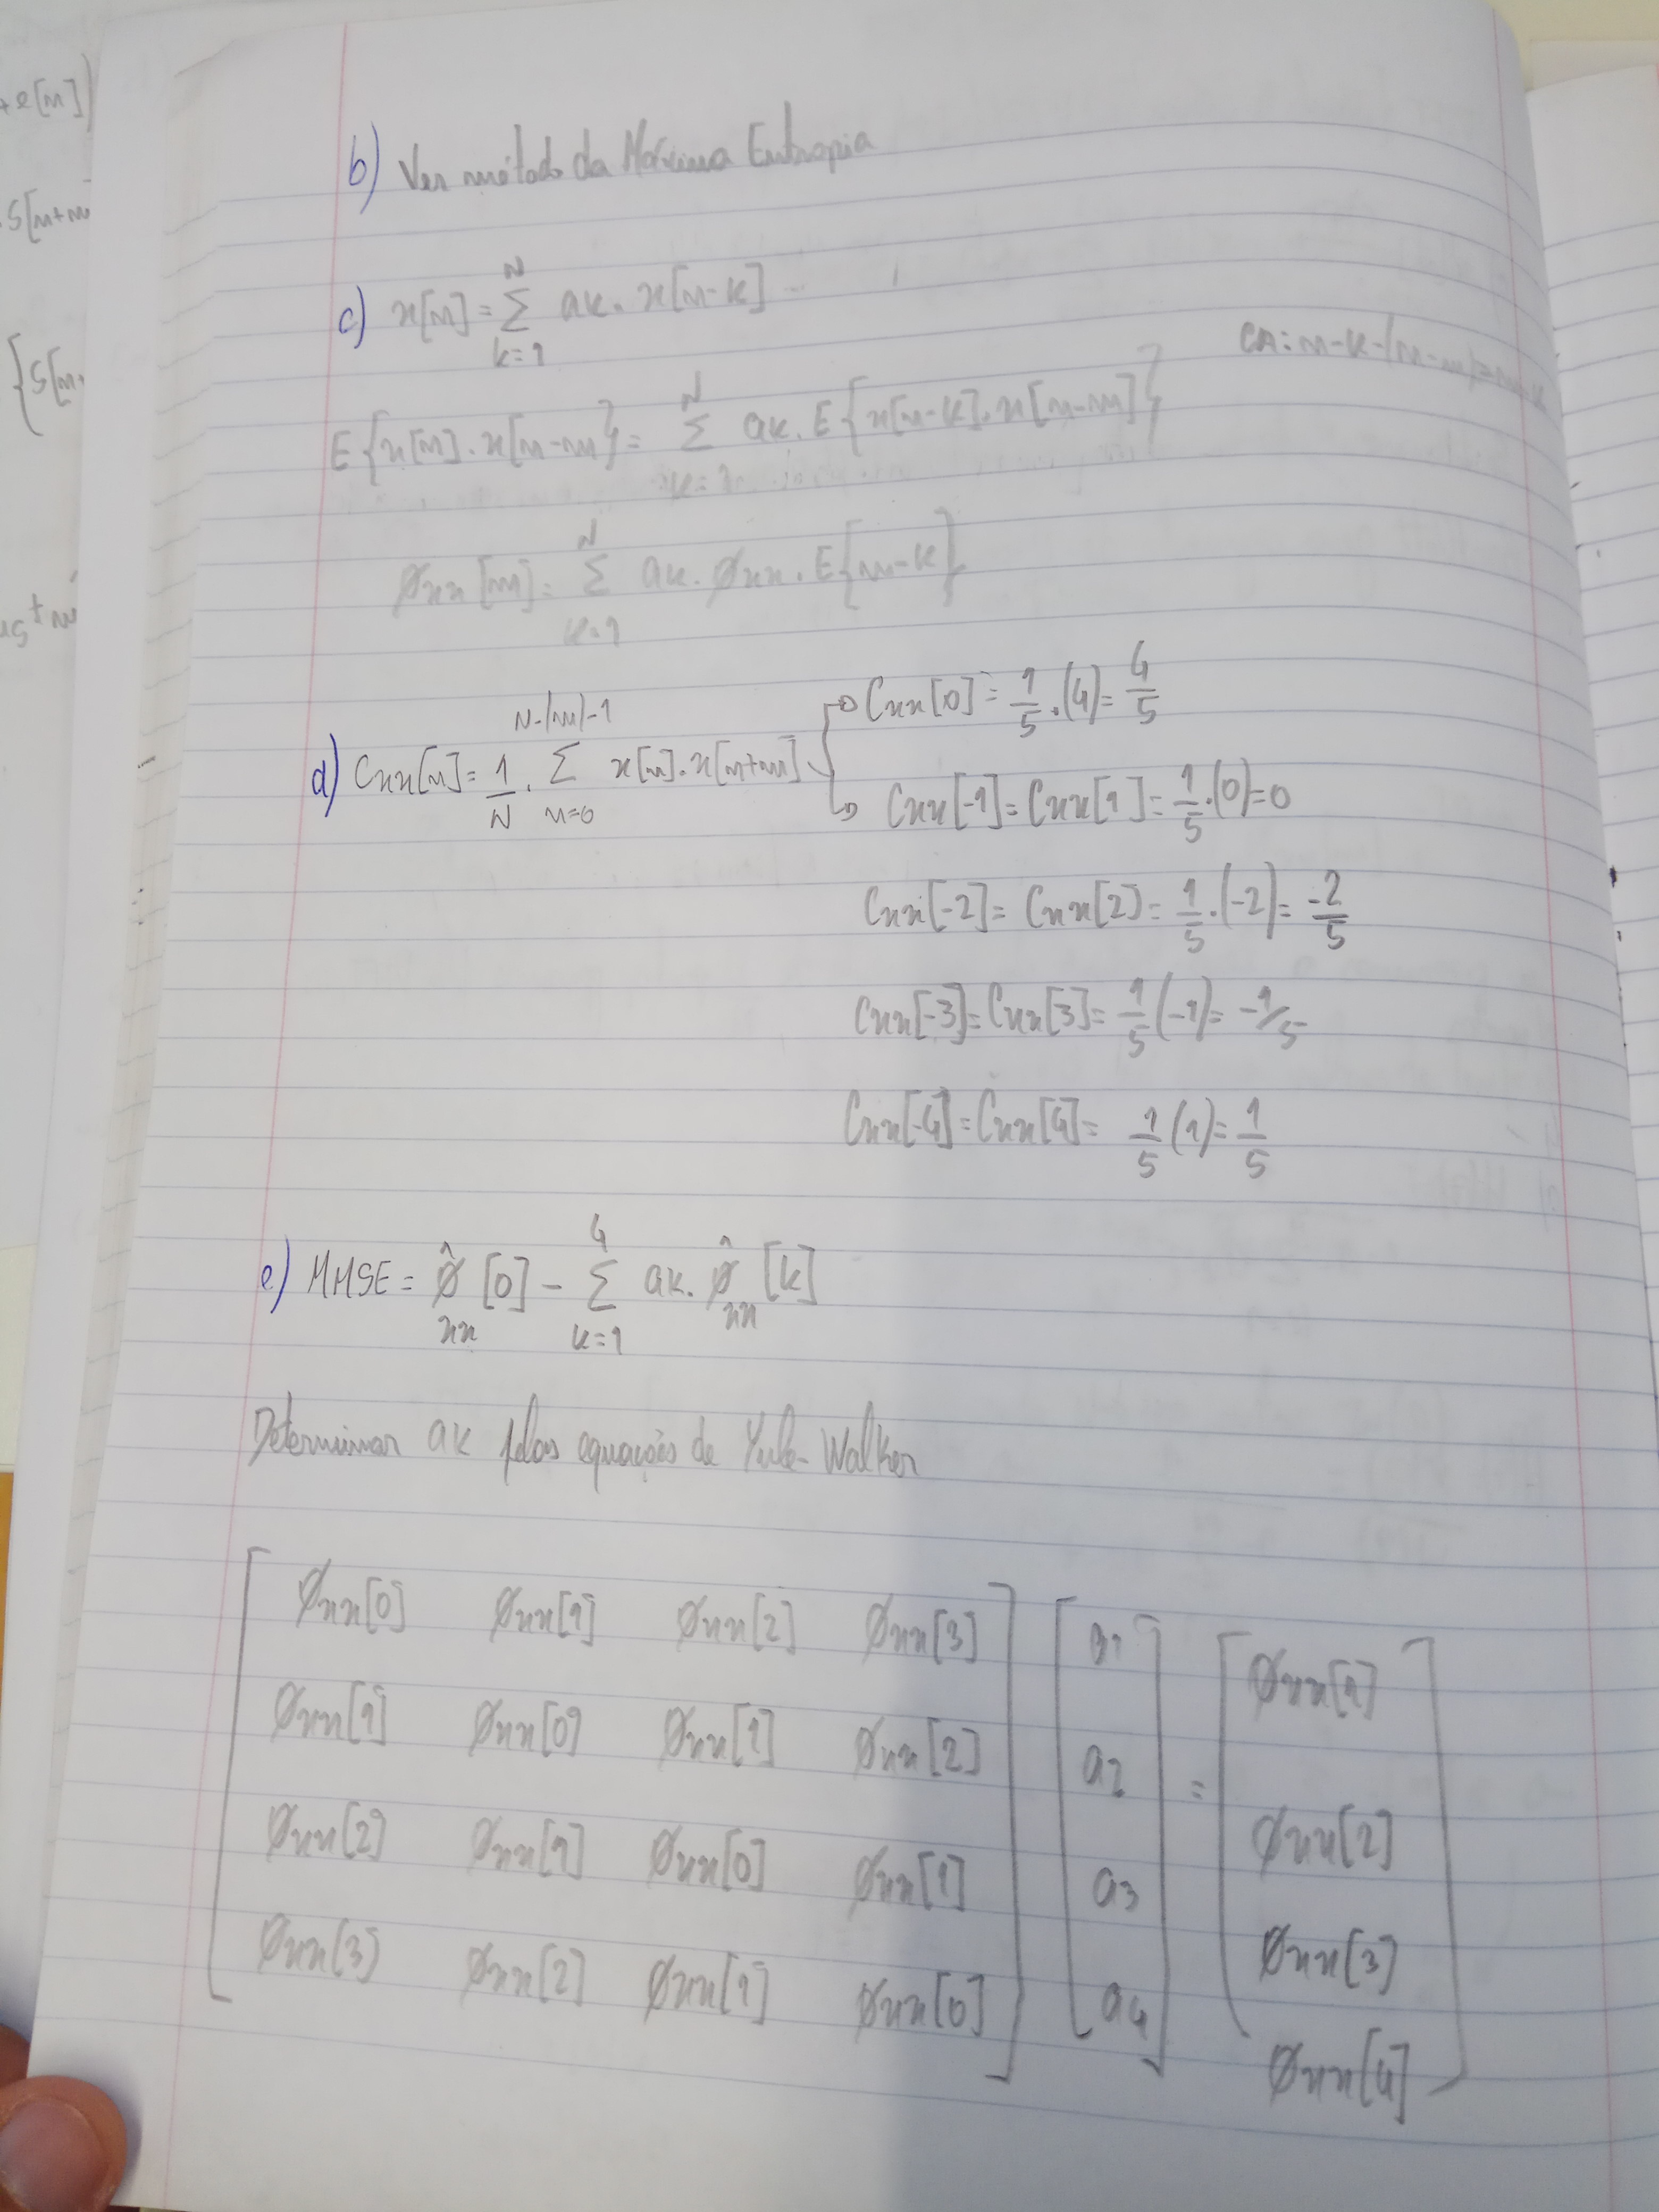 + e[m]
. S[m+m
{S[m.
b) Ver método da Máxima Entropia
c) x[n] = Σ_{k=1}^{N} ak . x[n-k]
CA: n-k-(n-m)=m-k
E{x[n] . x[n-m]} = Σ_{k=1}^{N} ak . E{x[n-k] . x[n-m]}
Øxx[m] = Σ_{k=1}^{N} ak . Øxx . E{m-k}
d) Cxx[m] = 1/N . Σ_{n=0}^{N-|m|-1} x[n] . x[n+m]
Cxx[0] = 1/5 . (4) = 4/5
Cxx[-1] = Cxx[1] = 1/5 . (0) = 0
Cxx[-2] = Cxx[2] = 1/5 . (-2) = -2/5
Cxx[-3] = Cxx[3] = 1/5 (-1) = -1/5
Cxx[-4] = Cxx[4] = 1/5 (1) = 1/5
e) MMSE = Ø̂xx[0] - Σ_{k=1}^{4} ak . Ø̂xx[k]
Determinar ak pelas equações de Yule-Walker
Øxx[0] Øxx[1] Øxx[2] Øxx[3] a1 Øxx[1]
Øxx[1] Øxx[0] Øxx[1] Øxx[2] a2 = Øxx[2]
Øxx[2] Øxx[1] Øxx[0] Øxx[1] a3 Øxx[3]
Øxx[3] Øxx[2] Øxx[1] Øxx[0] a4 Øxx[4]